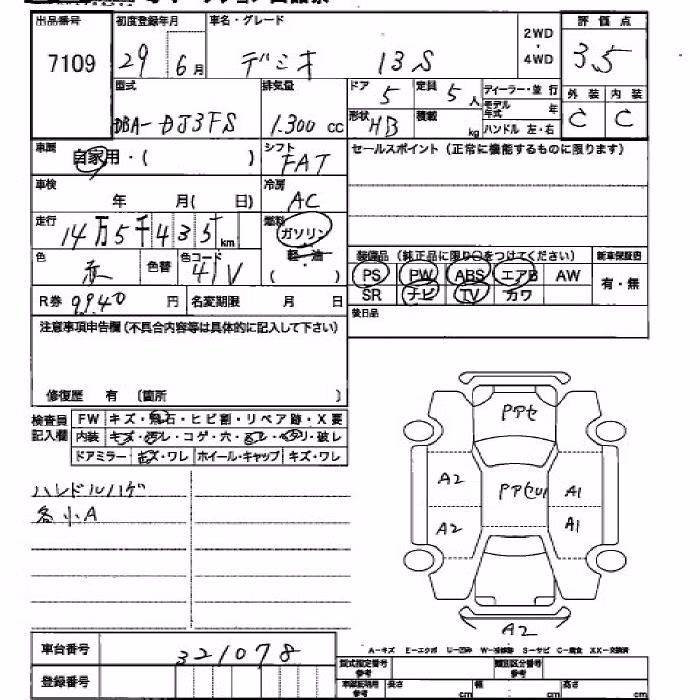 出品番号 初度登録年月 車名・グレード 評価点
7109 29年 6月 デミオ 13S 2WD・4WD 3.5
型式 排気量 ドア 定員 ディーラー・並行 外装 内装
DBA-DJ3FS 1.300cc 5 5人 モデル年式 年 C C
形状 HB 積載 kg ハンドル 左・右
車歴 自家用・( ) シフト FAT セールスポイント(正常に機能するものに限ります)
車検 年 月( 日) 冷房 AC
走行 14万5千435km 燃料 ガソリン
軽・油
色 赤 色替 色コード 41V ( ) 装備品(純正品に限り○をつけてください) 新車保証書
PS PW ABS エアB AW 有・無
R券 9940円 名変期限 月 日 SR ナビ TV カワ
後日品
注意事項申告欄(不具合内容等は具体的に記入して下さい)
修復歴 有 〔箇所 〕
検査員記入欄 FW キズ・飛石・ヒビ割・リペア跡・X要
内装
ドアミラー キズ・ワレ ホイール・キャップ キズ・ワレ
ハンドルハゲ
各小A
A2 A1
A2 A1
A2
車台番号 321078
A-キズ E-エクボ U-凹み S-サビ C-腐食
登録番号 型式指定番号 参考 類別区分番号 参考
長さ cm 幅 cm 高さ cm